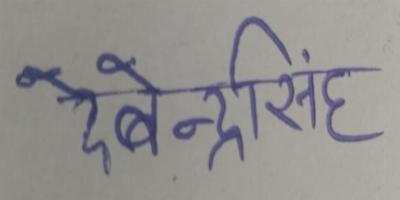 देबेन्द्रसिंह